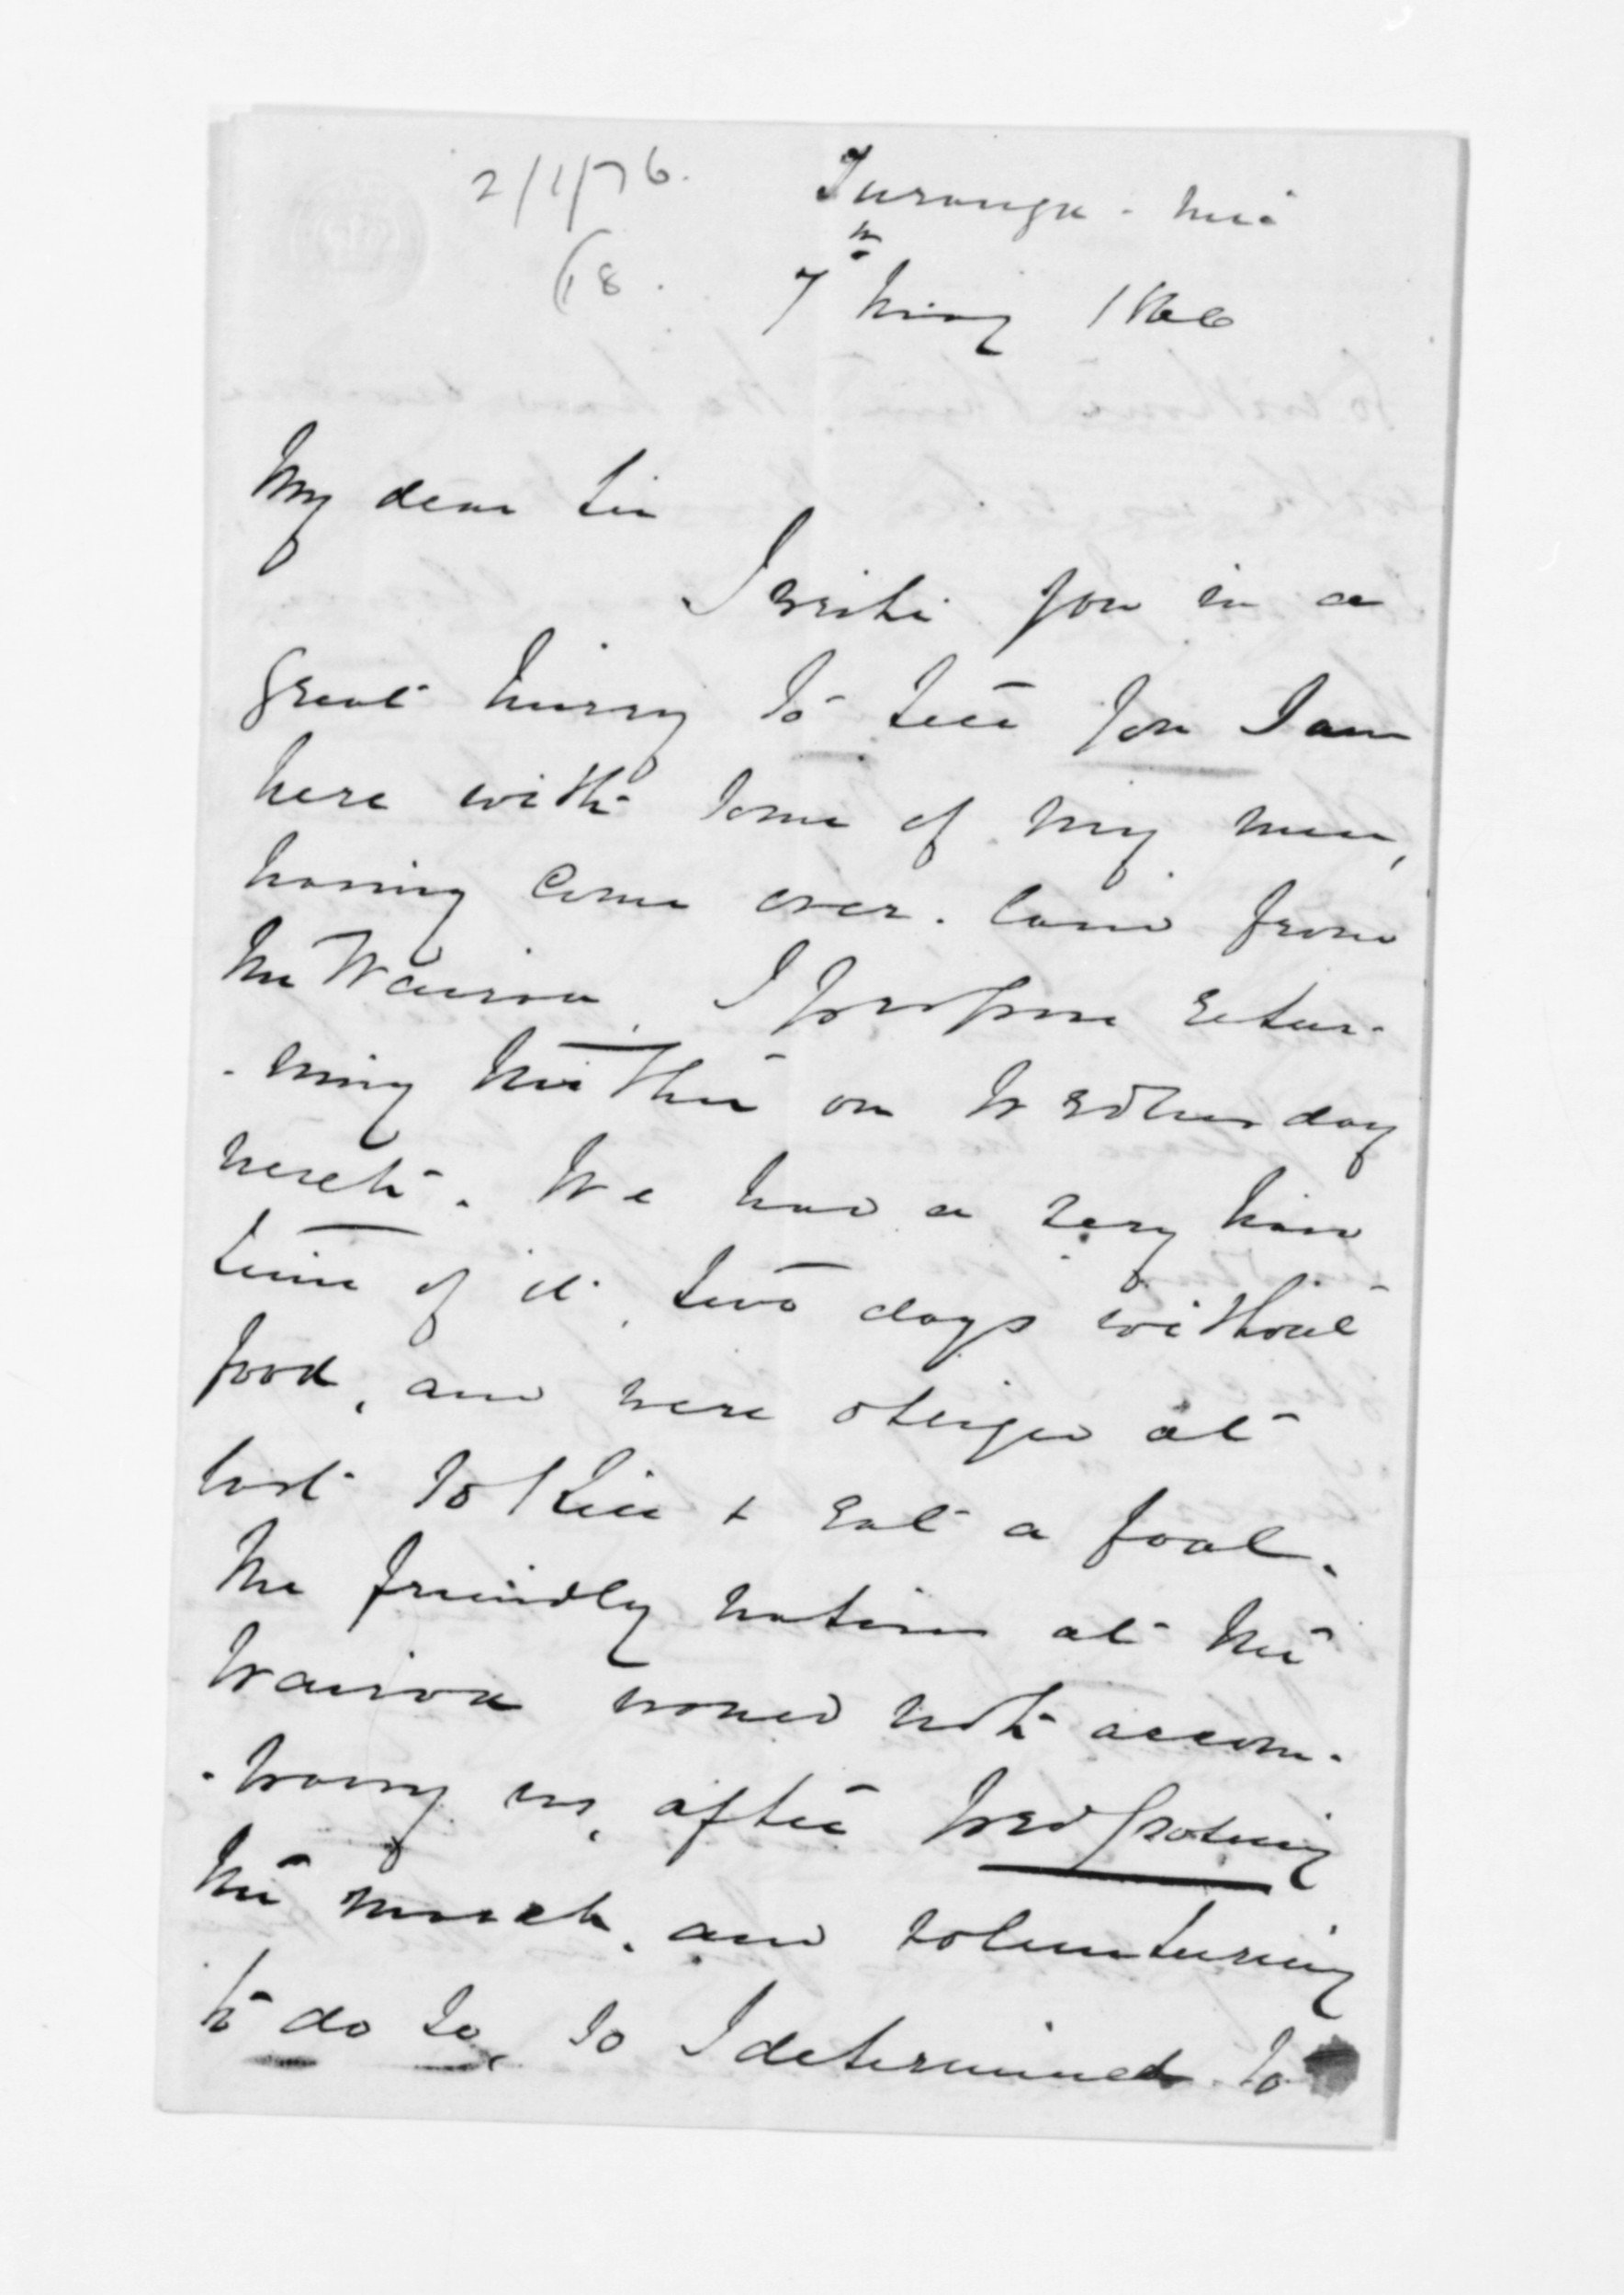 2/1/76.
(18.
Turanga - nui
7th May 1866
My dear Sir
I write you in a
great hurry to tell you I am
here with some of my men,
having come over. land from
the Wairoa, I propose retur-
-ning thither on Wednesday
next. We had a very hard
time of it, two days without
food, and were obliged at
last to kill + eat a foal.
The friendly natives at the
Wairoa would not accom-
-pany us, after proposing
the march, and volunteering
to do so, so I determined to